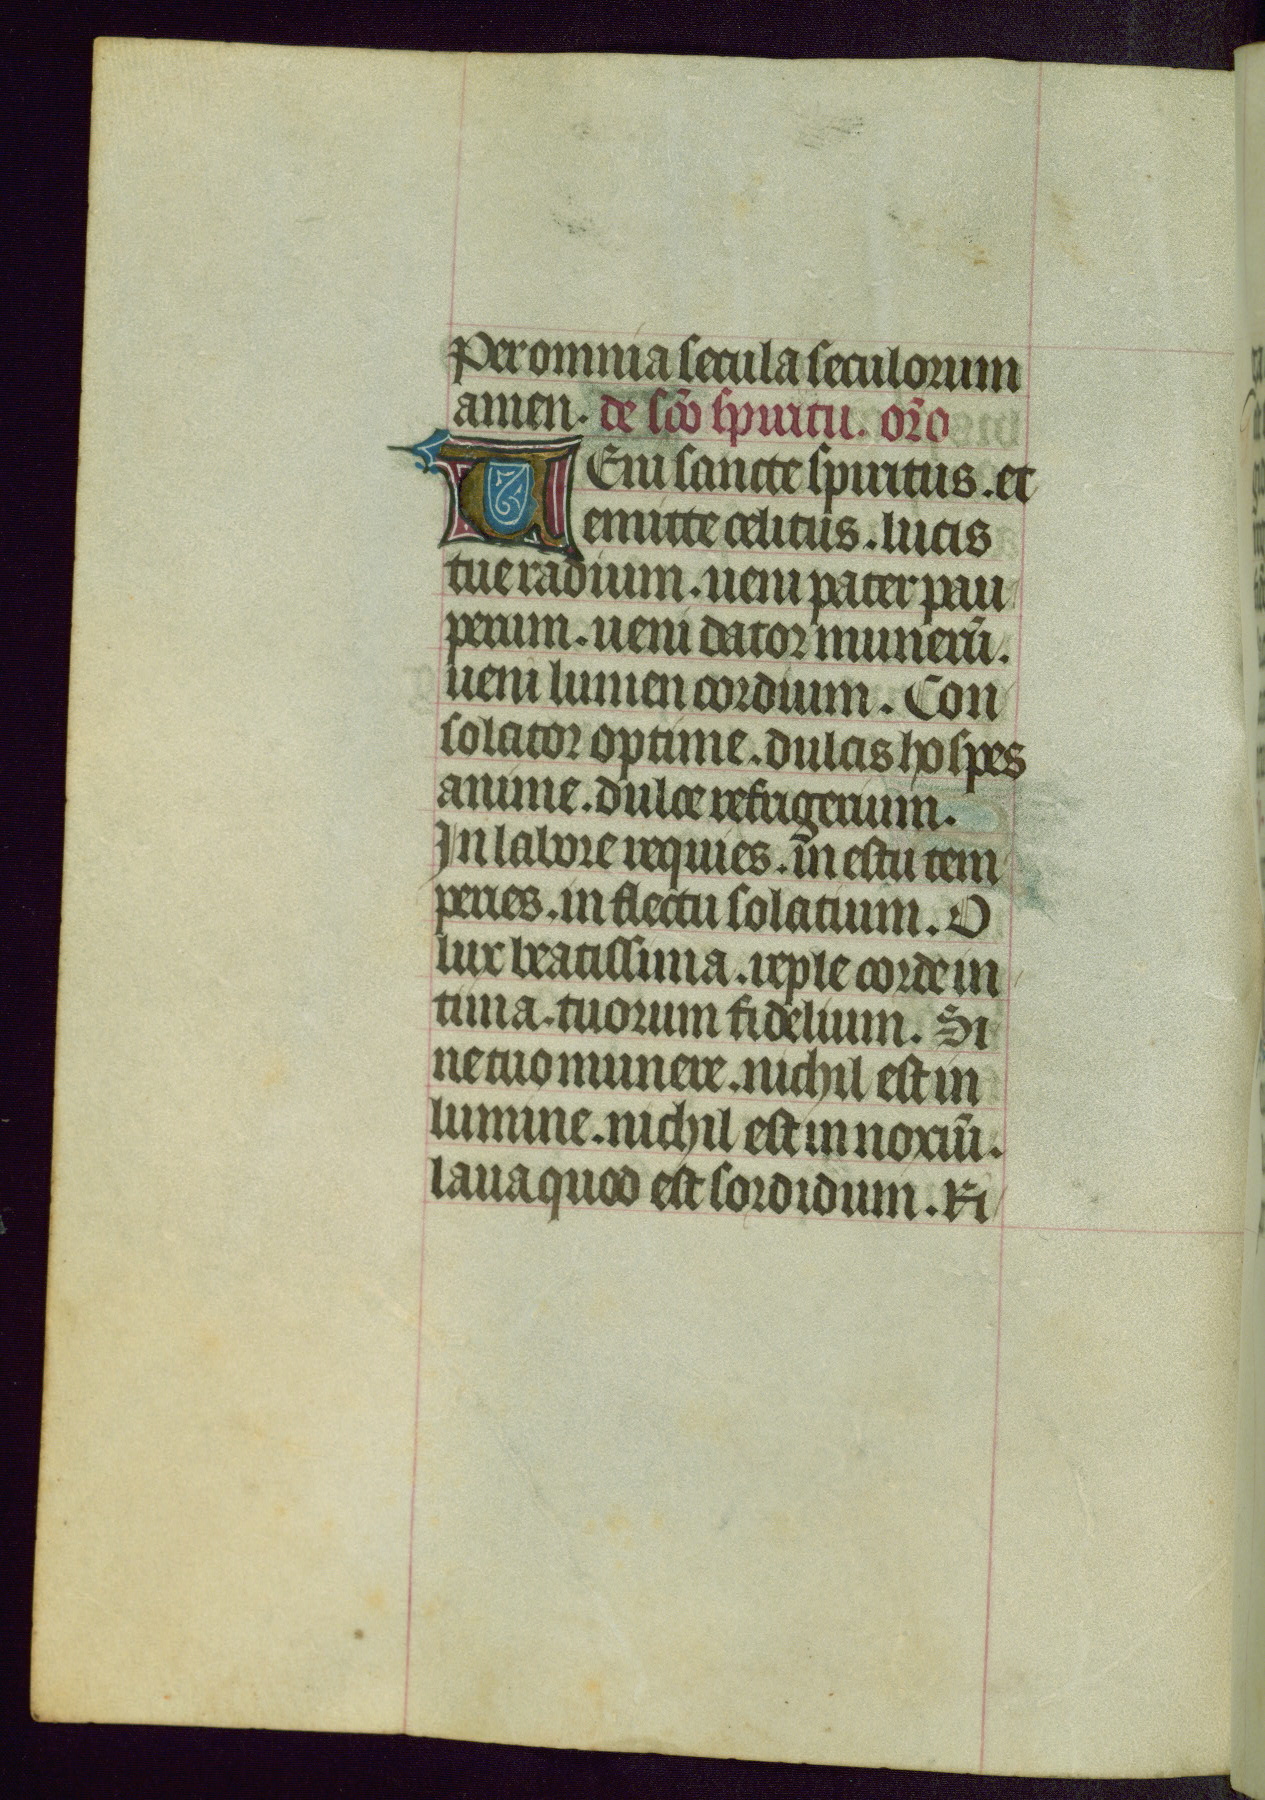 Per omnia secula seculorum
amen. de sc̃o spiritu. or̃o
UEni sancte spiritus. et
emitte celitus. lucis
tue radium. ueni pater pau
perum. ueni dator munerũ.
ueni lumen cordium. Con
solator optime. dulcis hospes
anime. dulce refrigerium.
In labore requies. in estu tem
peries. in flectu solatium. O
lux beatissima. reple corde in
tima. tuorum fidelium. Si
ne tuo munere. nichil est in
lumine. nichil est innoxiũ.
laua quod est sordidum. Ri